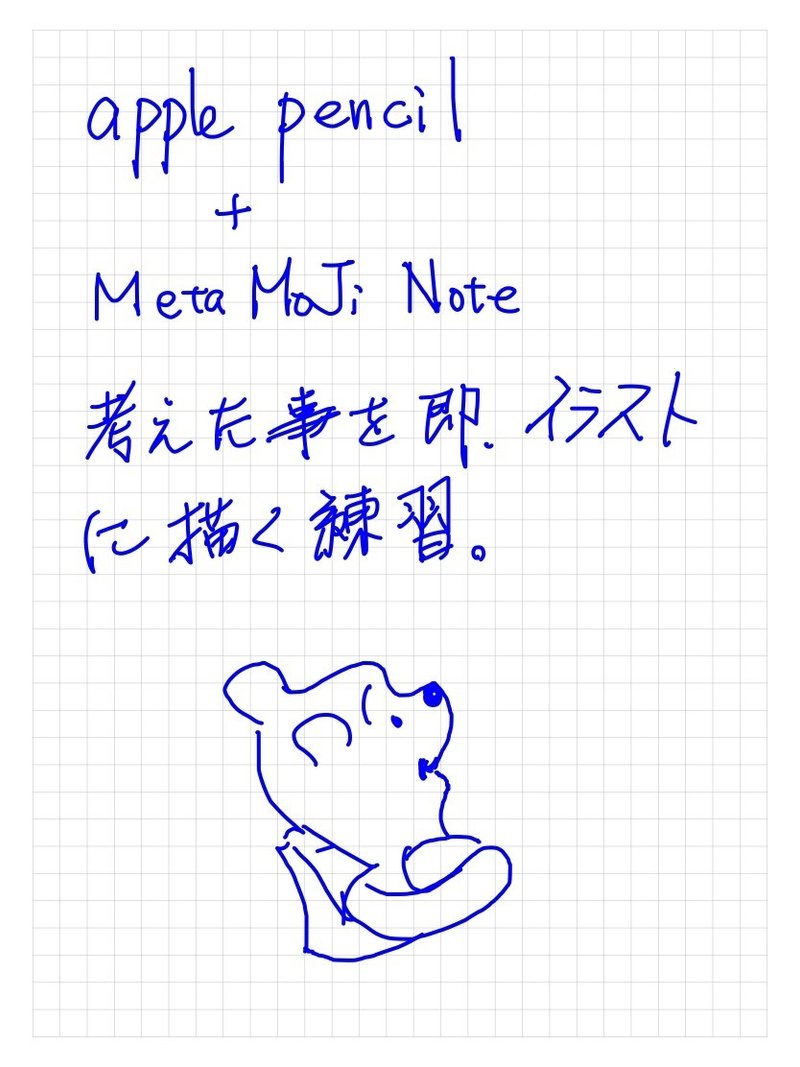 apple pencil
+
MetaMoJi Note
考えた事を即、イラスト
に描く練習。